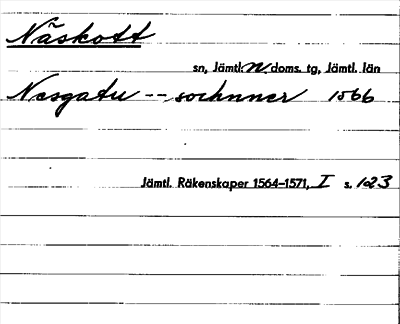 Näskott
sn, Jämtl: n doms. tg, Jämtl. län
Nesgatu -- sochnner 1566
Jämtl. Räkenskaper 1564–1571, I s. 123